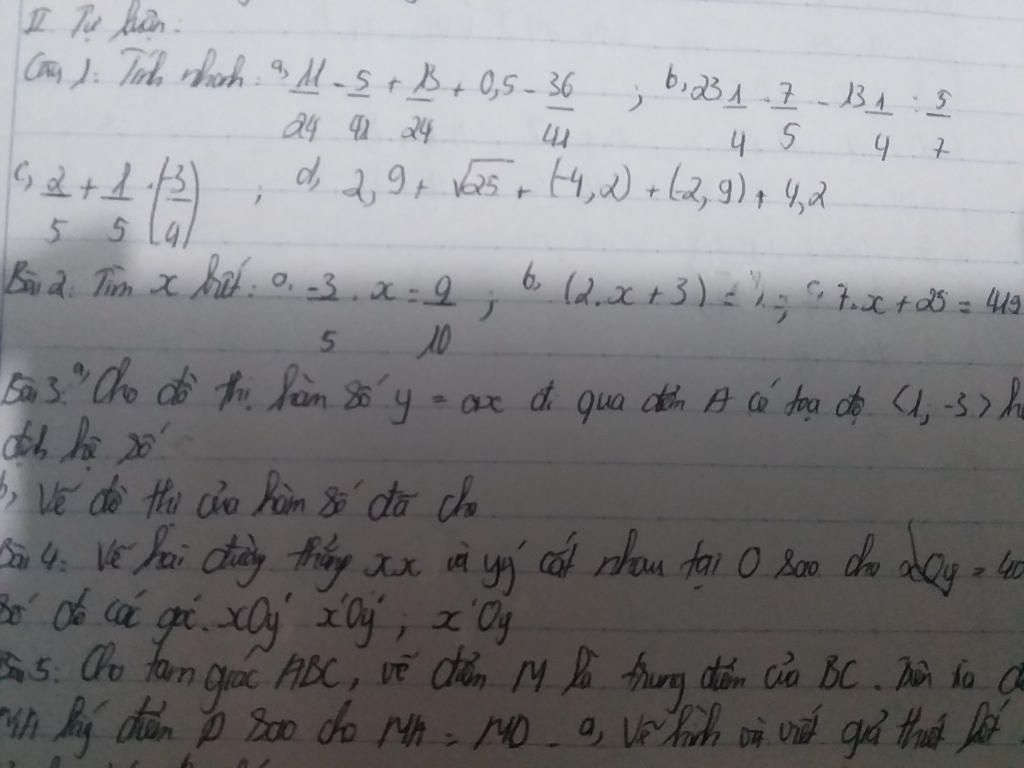 II Tự luận:
Câu 1: Tính nhanh: a, 11/24 - 5/41 + 13/24 + 0,5 - 36/41 ; b, 23 1/4 . 7/5 - 13 1/4 : 5/7
c, 2/5 + 1/5 . (-3/4) ; d, 2,9 + √25 + (-4,2) + (-2,9) + 4,2
Bài 2: Tìm x biết: a. -3/5 . x = 9/10 ; b, (2.x + 3) = ; c, 7.x + 25 = 419
Bài 3: a, Cho đồ thị hàm số y = ax đi qua điểm A có tọa độ (1; -3)
định hệ số
b, Vẽ đồ thị của hàm số đã cho
Bài 4: Vẽ hai đường thẳng xx và yý cắt nhau tại O sao cho xOy = 40
số đo các góc. xOy' x'Oy' ; x'Oy
Bài 5: Cho tam giác ABC, vẽ điểm M là trung điểm của BC. Trên tia
MA lấy điểm D sao cho MA = MD - a, Vẽ hình và viết giả thiết kết